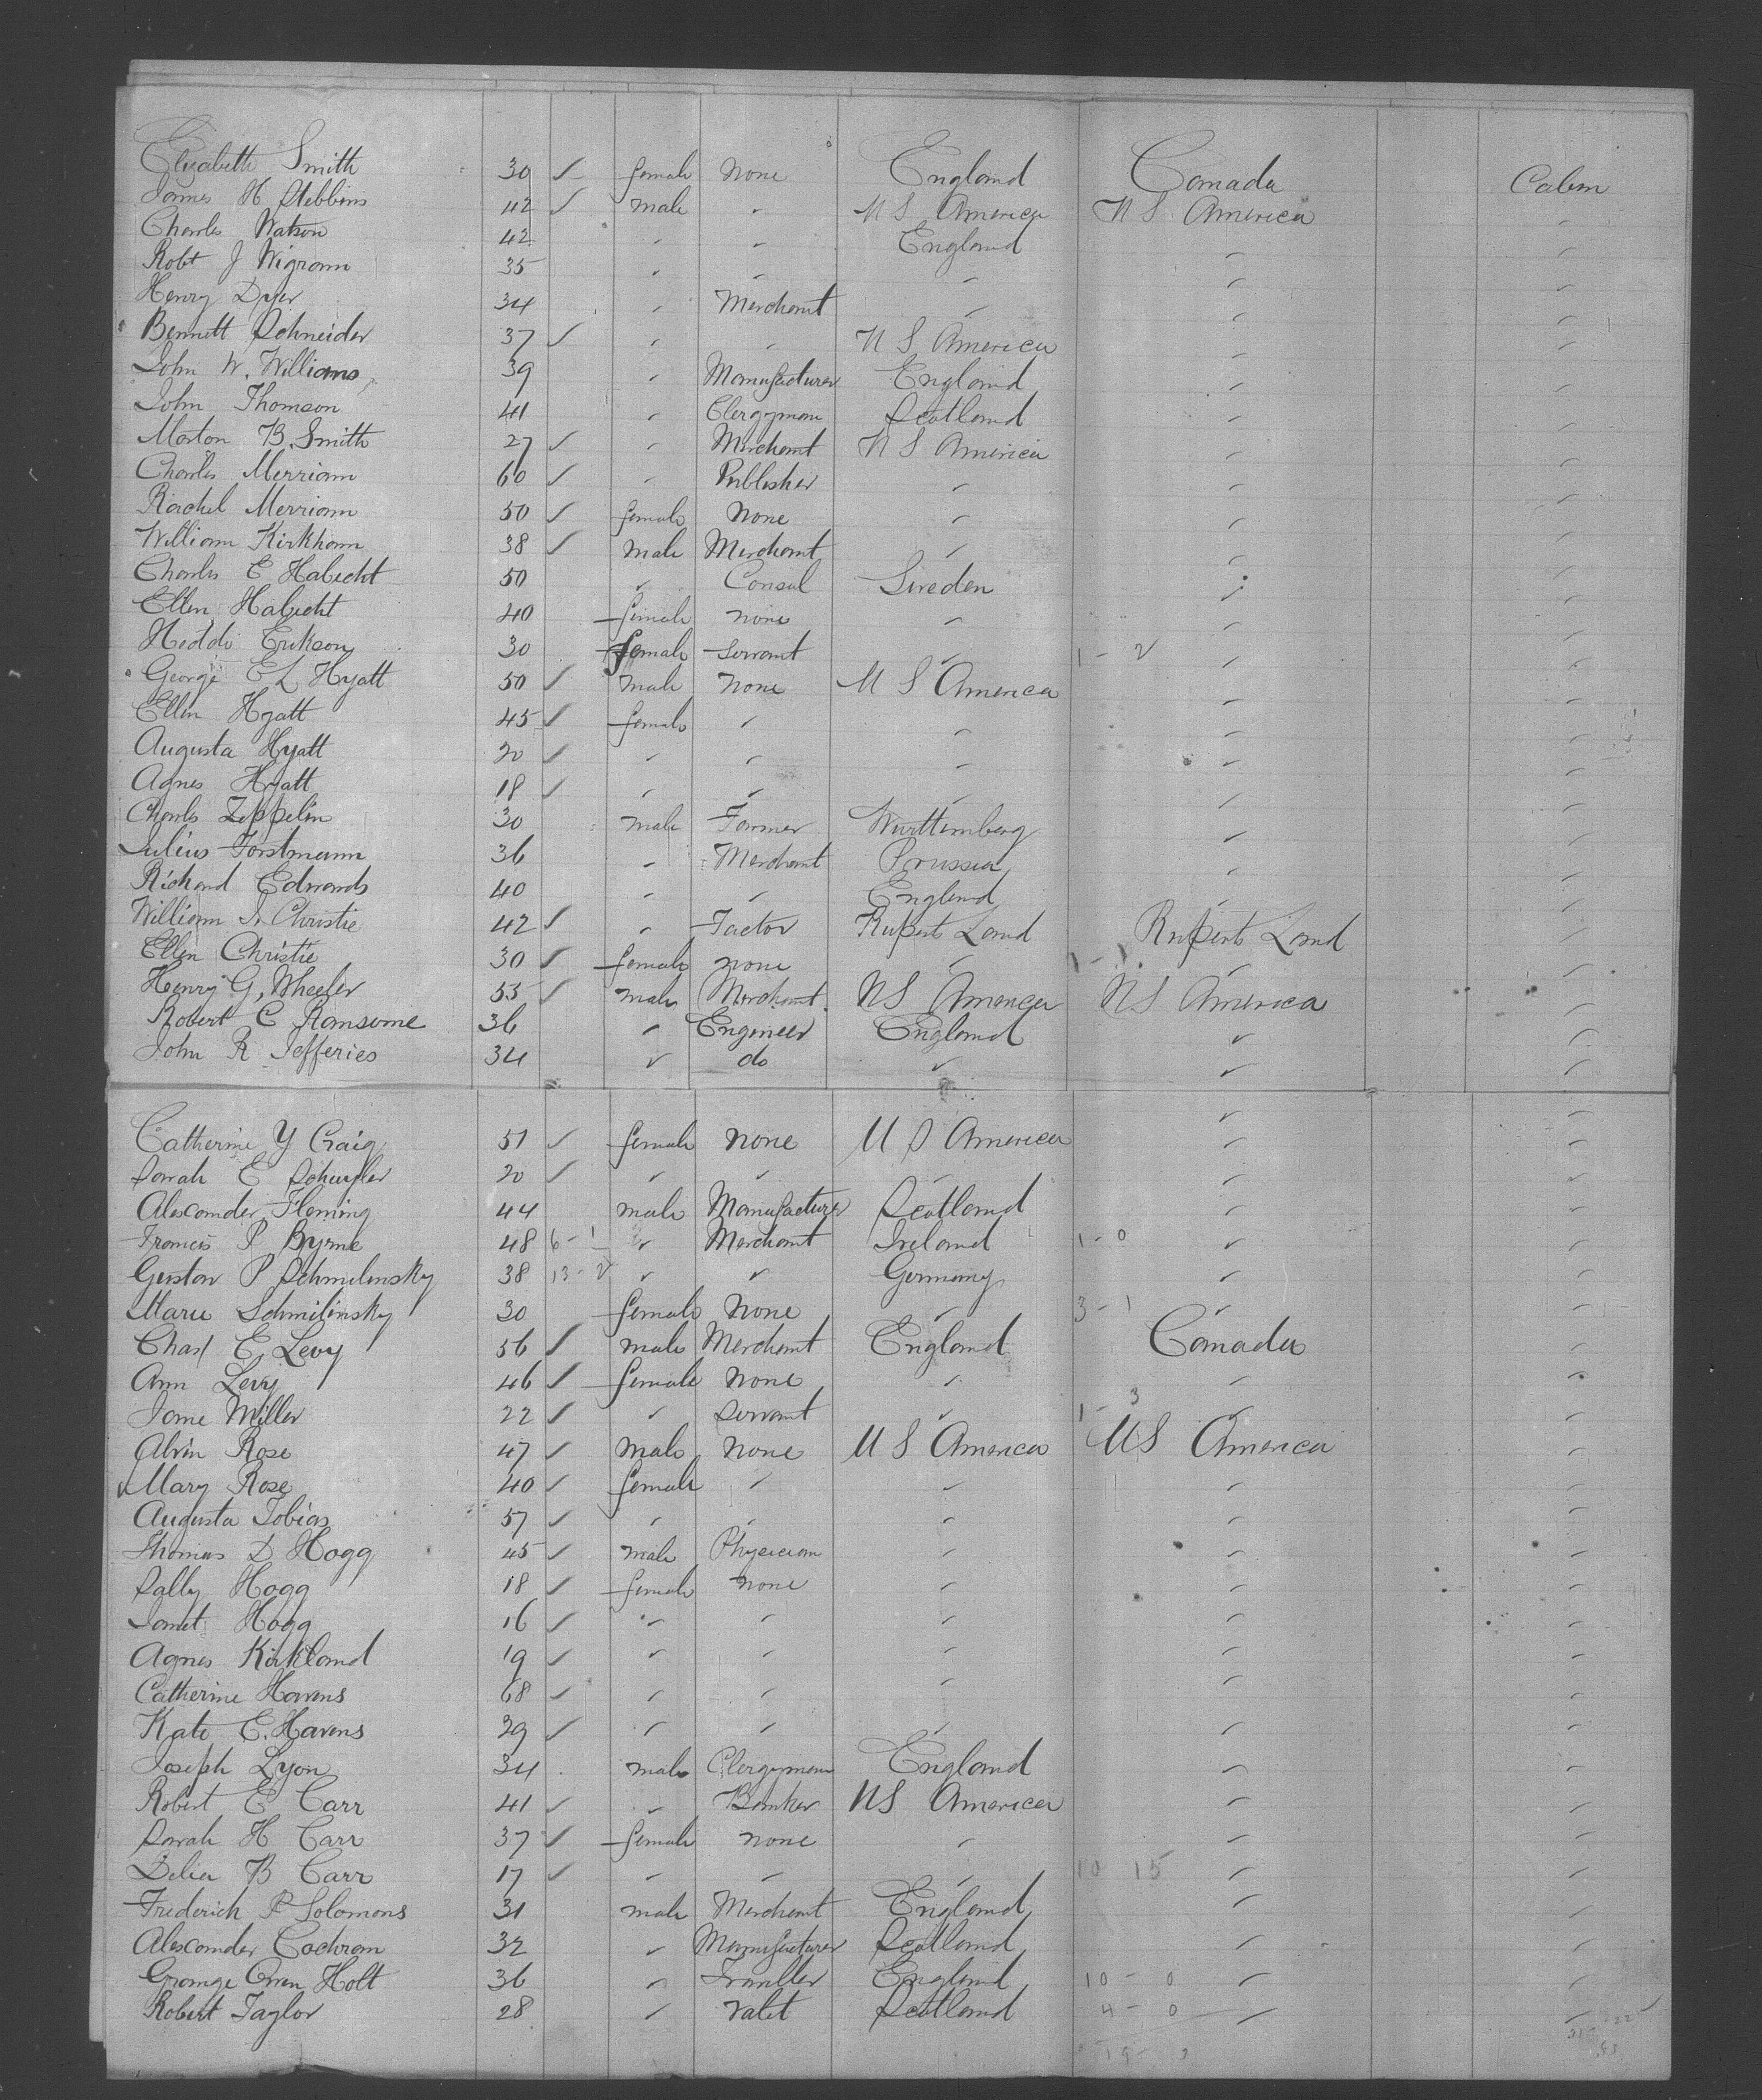 Elizabeth Smith 30 ✓ female none England Canada Cabin
James H Stebbins 42 ✓ male " U S America U S America "
Charles Watson 42 " " England " "
Robt J Wigram 35 " " " " "
Henry Dyer 34 " Merchant " " "
Bennett Schneider 37 ✓ " " U S America " "
John W. Williams 39 " Manufacturer England " "
John Thomson 41 " Clergyman Scotland " "
Morton B. Smith 27 ✓ " Merchant U S America " "
Charles Merriam 60 ✓ " Publisher " " "
Rachel Merriam 50 ✓ female None " " "
William Kirkham 38 ✓ male Merchant " " "
Charles E Habicht 50 " Consul Sweden " "
Ellen Habicht 40 female none " " "
Heddi Erikson 30 female Servant " 1 - 2 " "
George E L Hyatt 50 ✓ male none U S America " "
Ellen Hyatt 45 ✓ female " " " "
Augusta Hyatt 20 ✓ " " " " "
Agnes Hyatt 18 ✓ " " " " "
Charles Zeppelin 30 male Farmer Wurttemberg " "
Julius Forstmann 36 " Merchant Prussia " "
Richard Edwards 40 " " England " "
William J. Christie 42 ✓ " Factor Rupert Land Rupert Land "
Ellen Christie 30 ✓ female none " 1 - 1 " "
Henry G, Wheeler 53 ✓ male Merchant US America US America "
Robert C Ransome 36 " Engineer England " "
John R Jefferies 34 " do " " "
Catherine Y Craig 51 ✓ female none U S America " "
Sarah E Schuyler 20 ✓ " " " " "
Alexander Fleming 44 male Manufacturer Scotland " "
Francis P Byrne 48 6 - 1 " Merchant Ireland 1 - 0 " "
Gustav P Schmilinsky 38 13 - 2 " " Germany " "
Marie Schmilinsky 30 female None " 3 - 1 " "
Chas E Levy 56 ✓ male Merchant England Canada "
Ann Levy 46 ✓ female None " " "
Jane Miller 22 ✓ " Servant " 1 - 3 " "
Alvin Rose 47 ✓ male none U S America US America "
Mary Rose 40 ✓ female " " " "
Augusta Tobias 57 ✓ " " " " "
Thomas D Hogg 45 ✓ male Physician " " "
Sally Hogg 18 ✓ female none " " "
Janet Hogg 16 ✓ " " " " "
Agnes Kirkland 19 ✓ " " " " "
Catherine Havens 68 ✓ " " " " "
Kate E. Havens 29 ✓ " " " " "
Joseph Lyon 34 male Clergyman England " "
Robert E Carr 41 ✓ " Banker US America " "
Sarah H Carr 37 ✓ female none " " "
Delia B Carr 17 ✓ " " " 10 15 " "
Frederick P Solomons 31 male Merchant England " "
Alexander Cochran 32 " Manufacturer Scotland " "
Grange Owen Holt 36 " Traveller England 10 - 0 " "
Robert Taylor 28 " Valet Scotland 4 - 0 " "